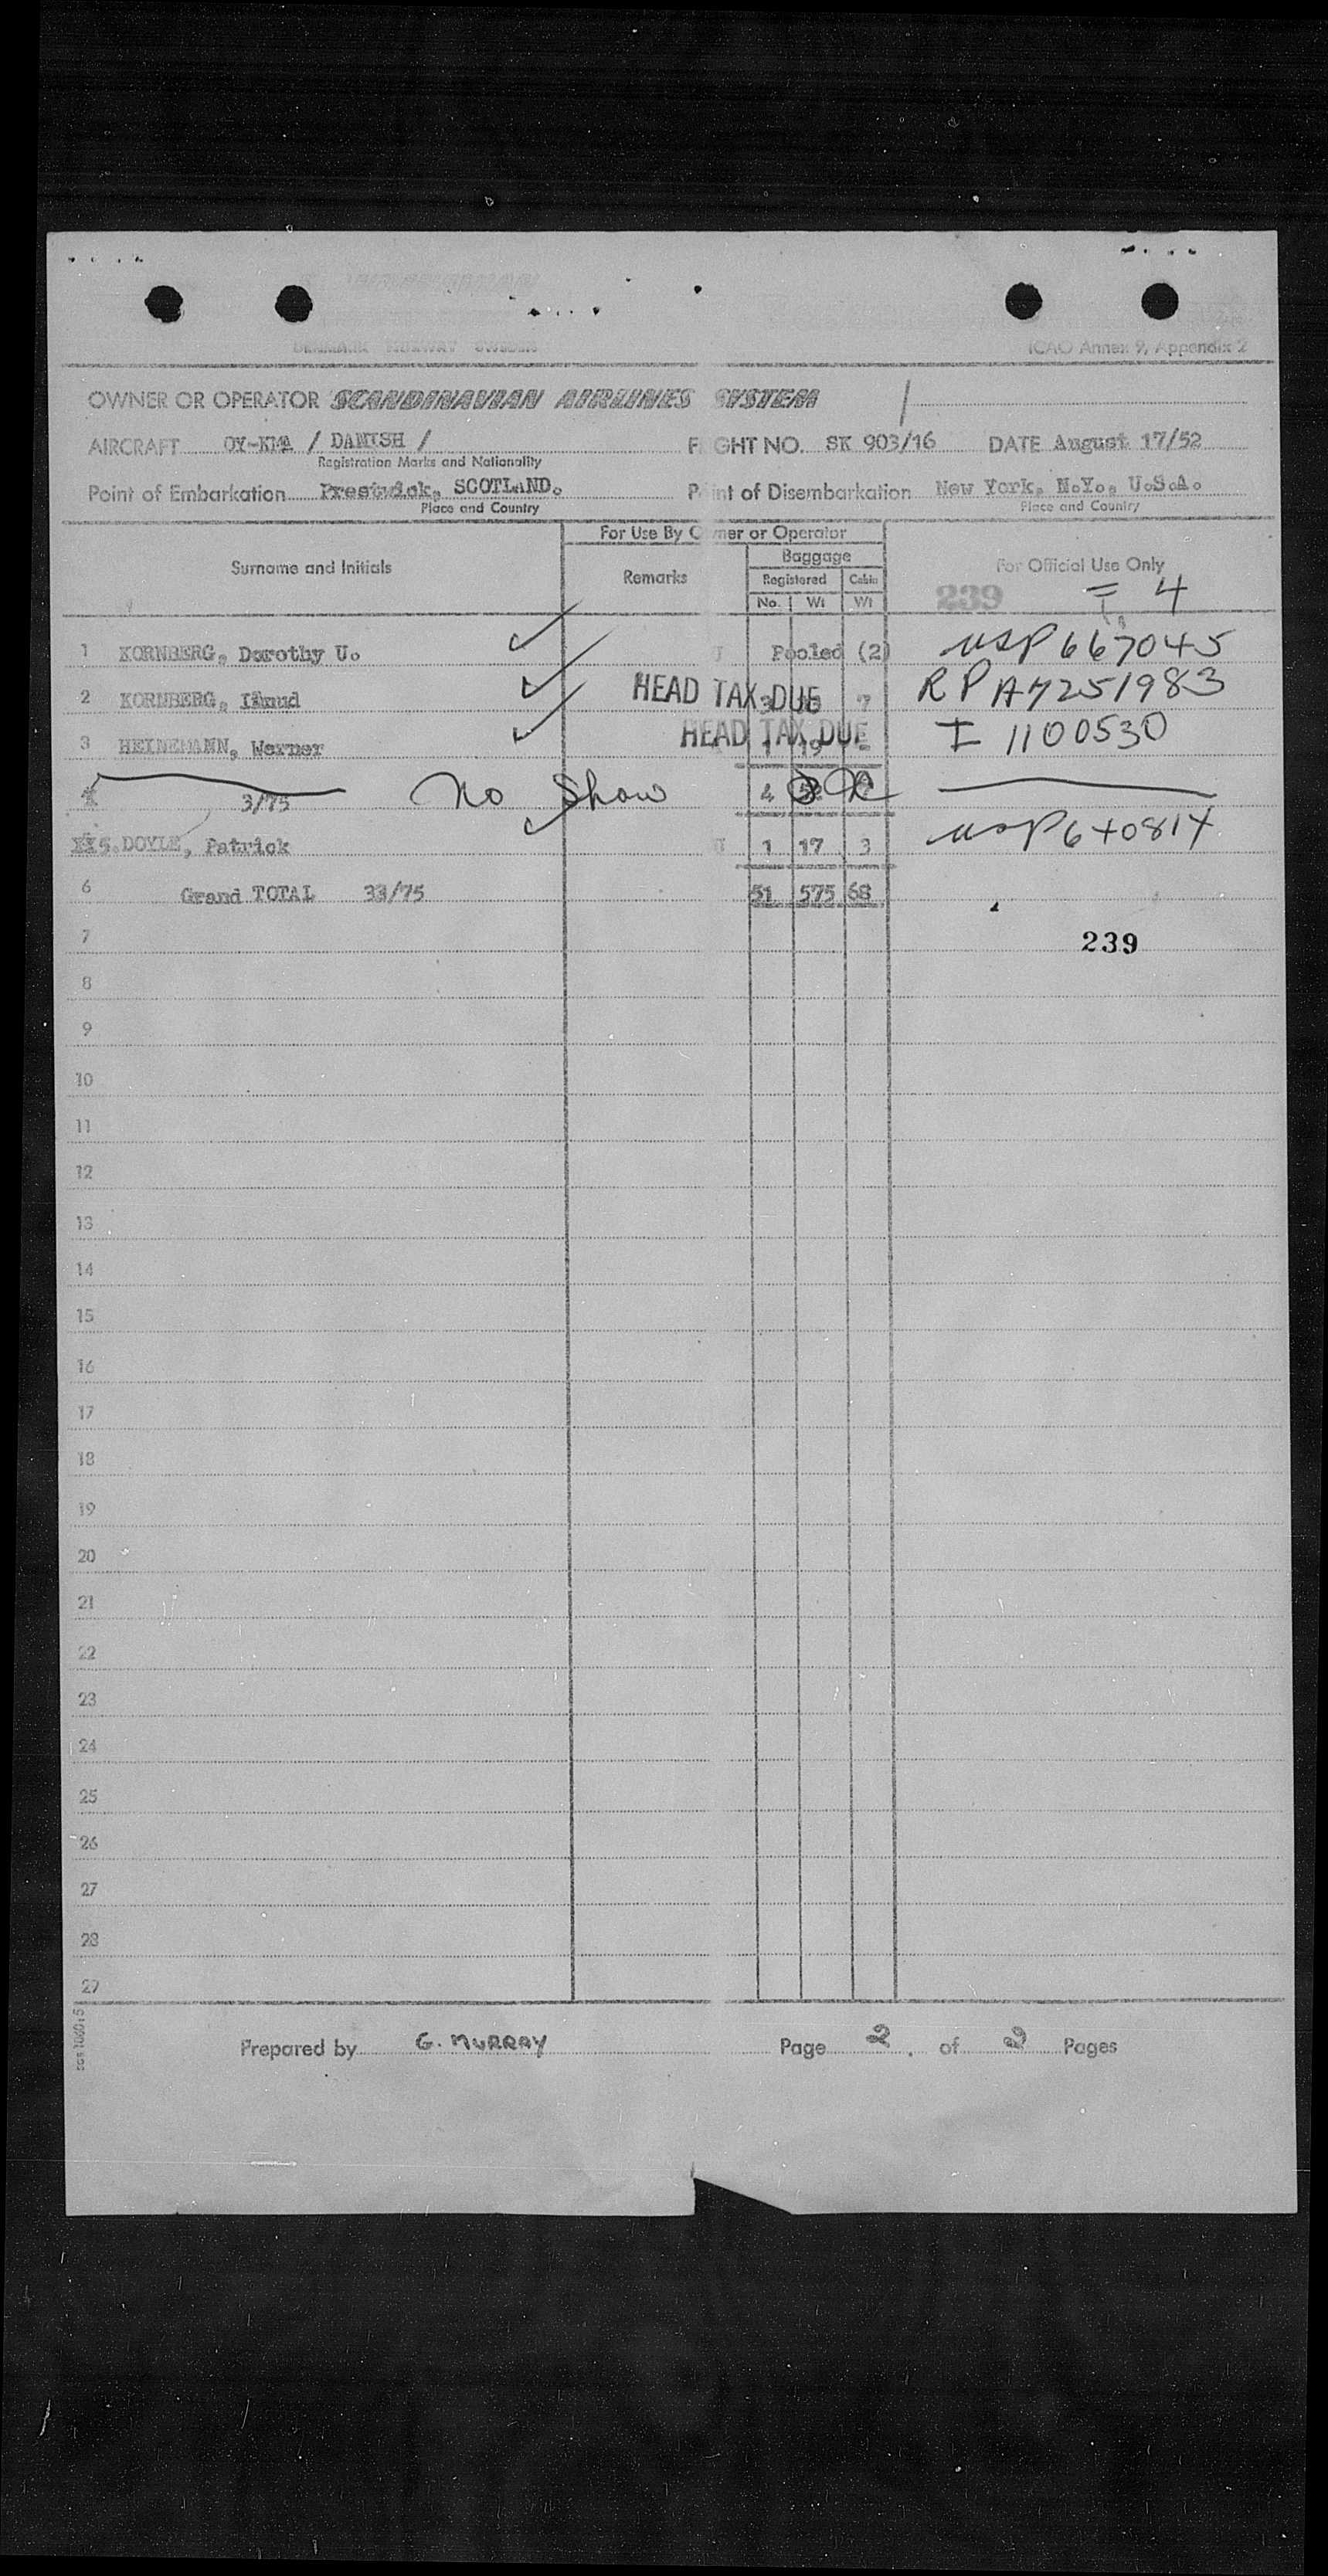 DENMARK NORWAY SWEDEN
ICAO Annex 9, Appendix 2
OWNER OR OPERATOR SCANDINAVIAN AIRLINES SYSTEM
AIRCRAFT OY-KMA / DANISH / FLIGHT NO. SK 903/16 DATE August 17/52
Registration Marks and Nationality
Point of Embarkation Prestwick, SCOTLAND. Point of Disembarkation New York, N.Y., U.S.A.
Place and Country Place and Country
For Use By Owner or Operator
Surname and Initials Remarks Baggage For Official Use Only
Registered Cabin
No. Wt Wt
239 = 4
1 KORNBERG, Dorothy U. Pooled (2) USP 667045
2 KORNBERG, HEAD TAX DUE 3 7 RP A7251983
3 HEINEMANN, Werner HEAD TAX DUE 1 19 I 1100530
4 3/75 No Show 4
5. DOYLE, Patrick 1 17 3 USP 640814
6 Grand TOTAL 33/75 51 575 68
7 239
8
9
10
11
12
13
14
15
16
17
18
19
20
21
22
23
24
25
26
27
28
27
Prepared by G. MURRAY Page 2. of 2 Pages